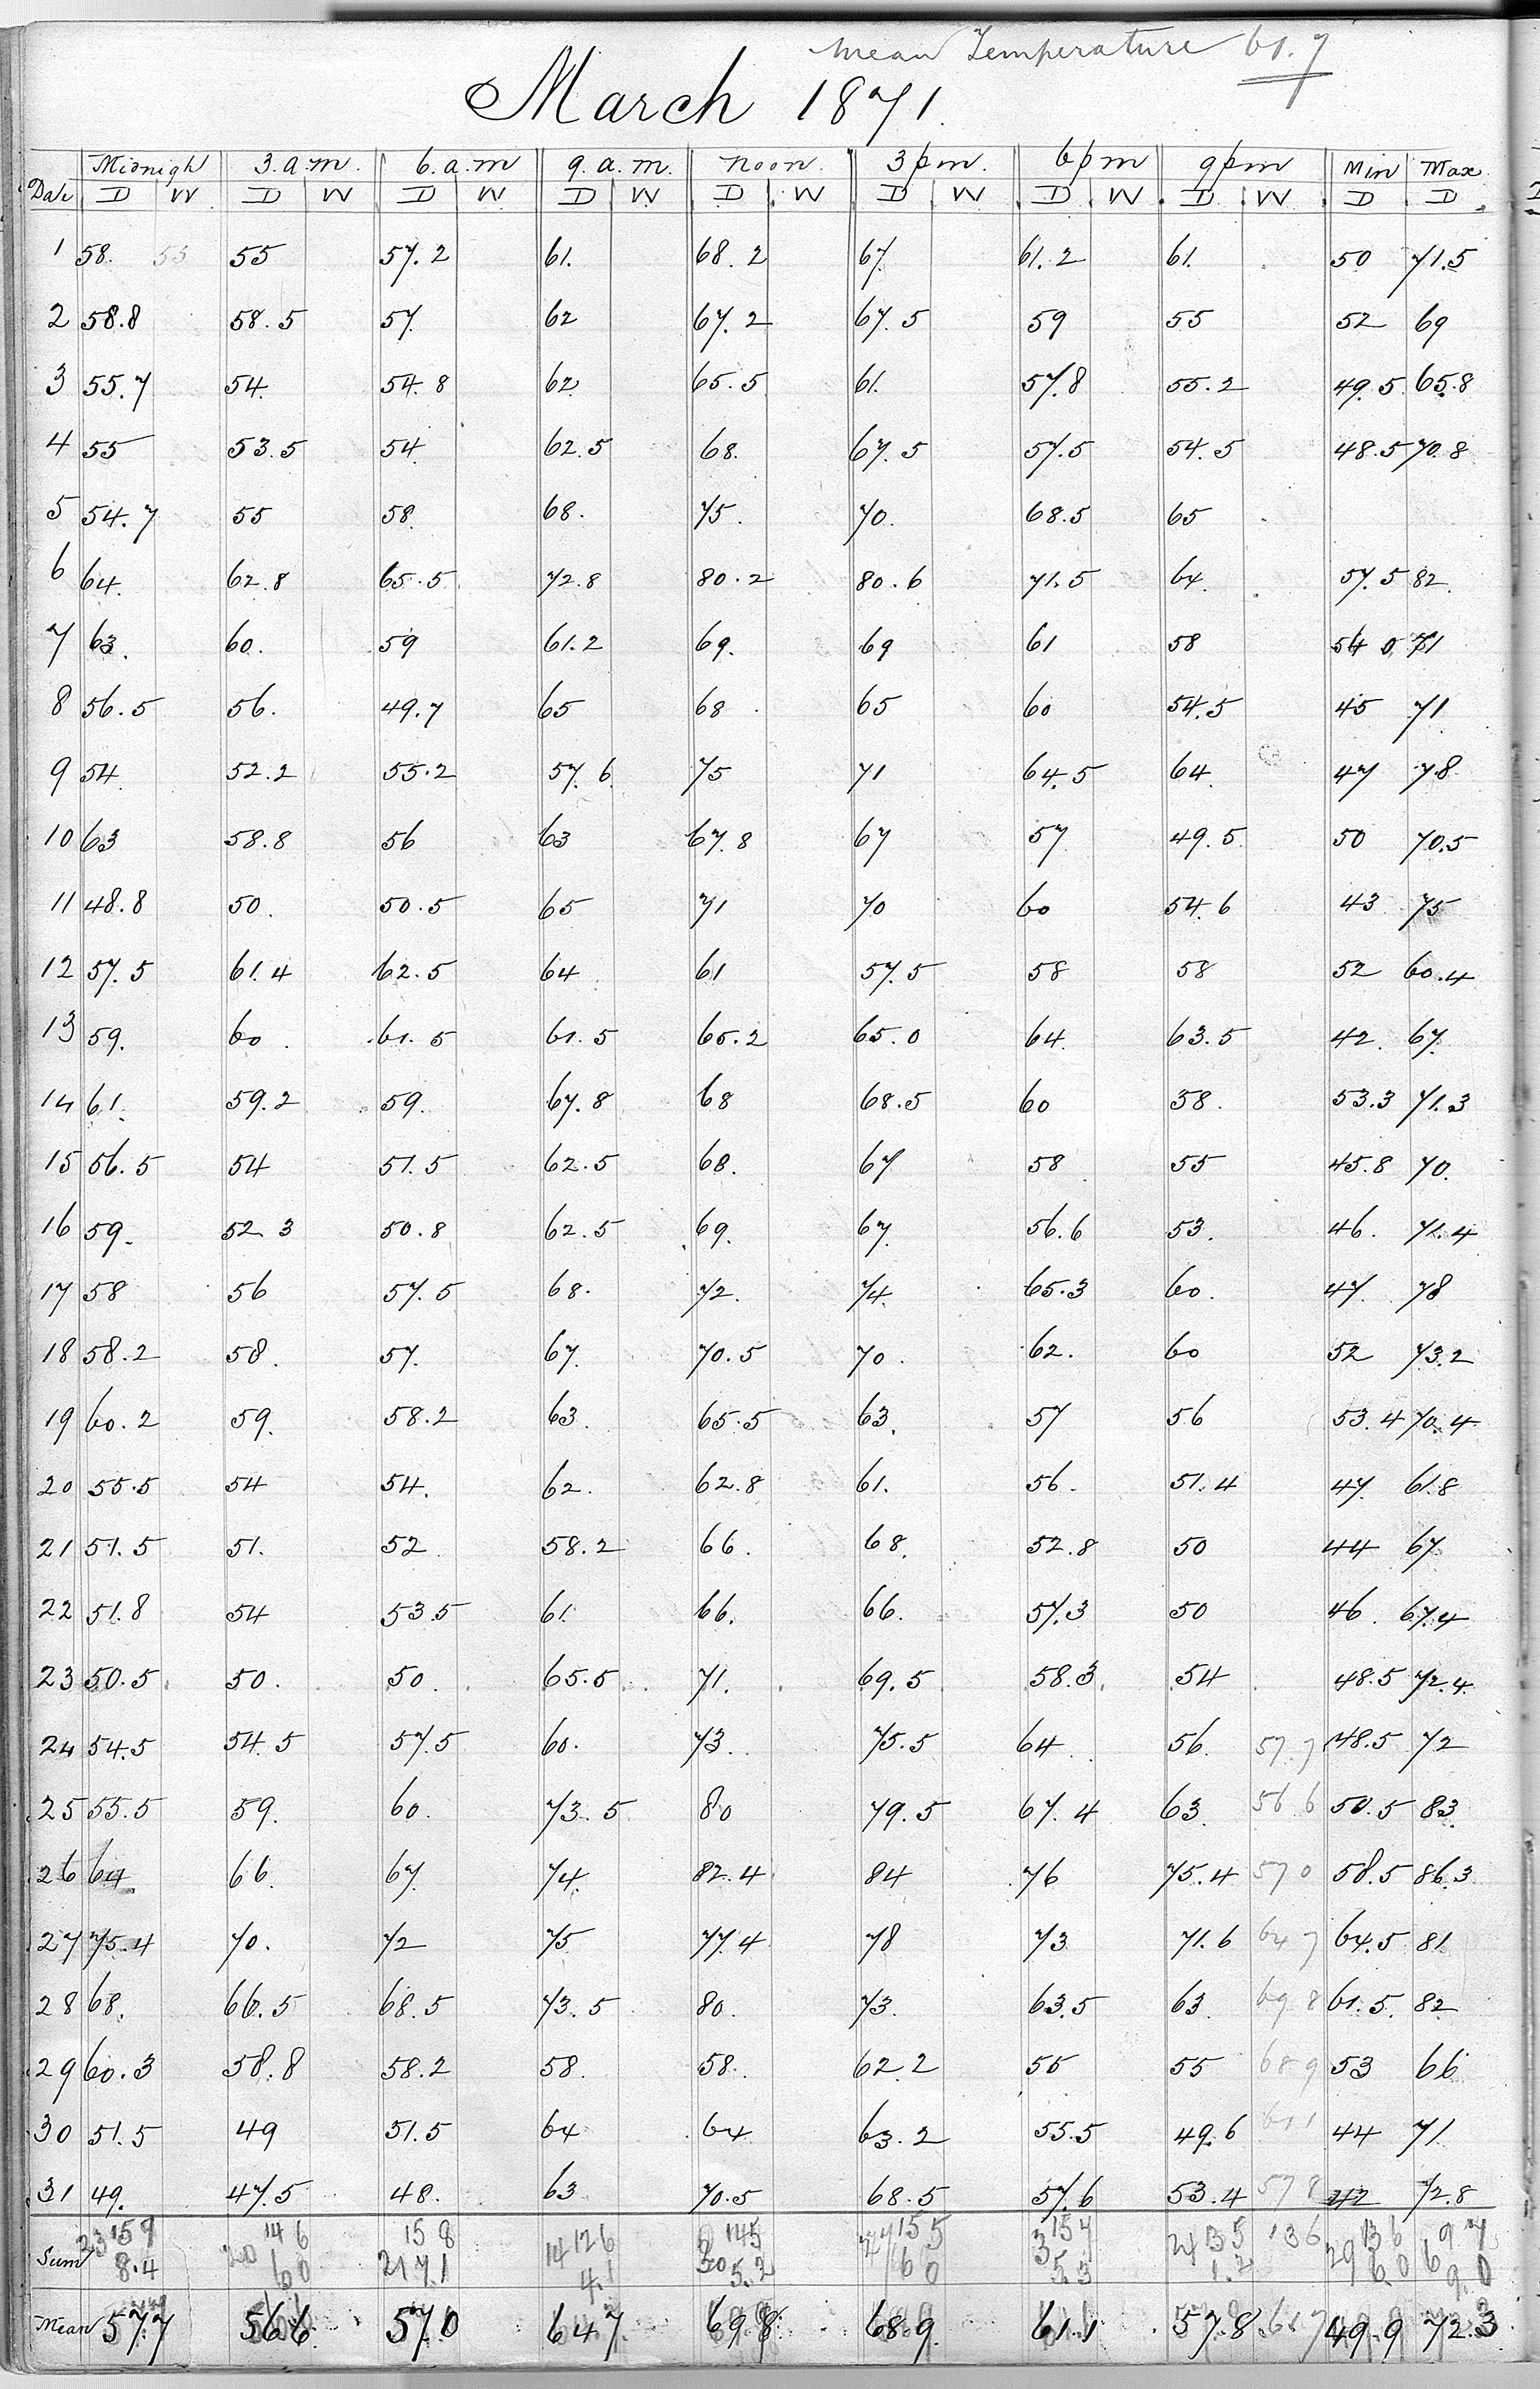 Mean Temperature 61.7
March 1871.
Midnigh 3.a.m. 6.a.m 9.a.m. Noon. 3pm. 6pm 9pm Min Max
Date D W D W D W D W D W D W D W D W D D
1 58. 55 55 57.2 61. 68.2 67 61.2 61. 50 71.5
2 58.8 58.5 57. 62 67.2 67.5 59 55 52 69
3 55.7 54. 54.8 62 65.5 61. 57.8 55.2 49.5 65.8
4 55 53.5 54. 62.5 68. 67.5 57.5 54.5 48.5 70.8
5 54.7 55 58. 68. 75. 70. 68.5 65
6 64. 62.8 65.5 72.8 80.2 80.6 71.5 64. 57.5 82.
7 63. 60. 59 61.2 69. 69 61 58 54 0 71
8 56.5 56. 49.7 65 68. 65 60 54.5 45 71
9 54. 52.2 55.2 57.6 75 71 64.5 64. 47 78
10 63 58.8 56 63 67.8 67 57 49.5 50 70.5
11 48.8 50. 50.5 65 71 70 60 54.6 43 75
12 57.5 61.4 62.5 64 61 57.5 58 58 52 60.4
13 59. 60. 61.5 61.5 65.2 65.0 64. 63.5 42. 67.
14 61. 59.2 59. 67.8 68 68.5 60 58. 53.3 71.3
15 56.5 54 51.5 62.5 68. 67 58 55 45.8 70.
16 59. 52.3 50.8 62.5 69. 67. 56.6 53. 46. 71.4
17 58 56 57.5 68. 72. 74. 65.3 60. 47. 78
18 58.2 58. 57. 67. 70.5 70. 62. 60 52 73.2
19 60.2 59. 58.2 63. 65.5 63. 57 56 53.4 70.4
20 55.5 54 54. 62. 62.8 61. 56. 51.4 47. 61.8
21 51.5 51. 52 58.2 66. 68. 52.8 50 44 67
22 51.8 54 53.5 61. 66. 66. 57.3 50 46. 67.4
23 50.5 50. 50. 65.5 71. 69.5 58.3. 54 48.5 72.4
24 54.5 54.5 57.5 60. 73. 75.5 64. 56. 57.7 48.5 72
25 55.5 59. 60. 73.5 80 79.5 67.4 63. 56 6 50.5 83.
26 64 66. 67. 74. 82.4 84 76 75.4 57 0 58.5 86.3
27 75.4 70. 72 75 77.4 78 73 71.6 64 7 64.5 81
28 68. 66.5 68.5 73.5 80. 73. 63.5 63. 69 8 61.5. 82
29 60.3 58.8 58.2 58. 58. 62.2 55 55 68 9 53 66
30 51.5 49 51.5 64 64 63.2 55.5 49.6 61 1 44 71
31 49. 47.5 48. 63 70.5 68.5 57.6 53.4 57 8 42 72.8
Sum
Mean 57.7 56.6 57.0 64.7 69.8 68.9 61.1 57.8 61.7 49.9 72.3